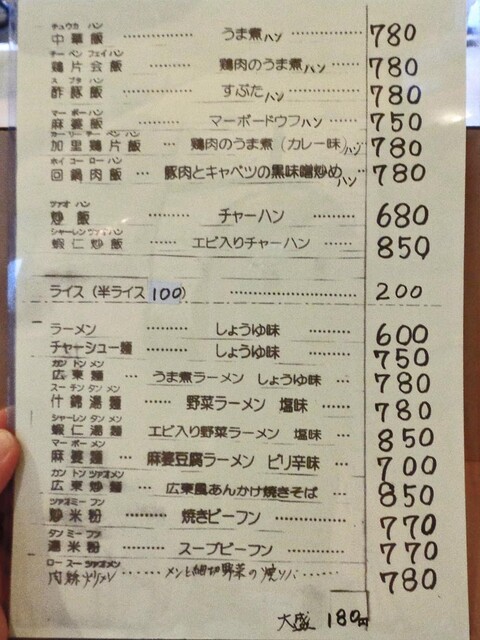 チュウカ ハン
中華飯 ………… うま煮ハン 780
チー ペン フェイ ハン
鶏片会飯 ……… 鶏肉のうま煮ハン …… 780
ス ブタ ハン
酢豚飯 ………… すぶたハン 780
マー ボー ハン
麻婆飯 ………… マーボードウフハン 750
カーリー チー ペン ハン
加里鶏片飯 … 鶏肉のうま煮(カレー味)ハン 780
ホイ コー ロー ハン
回鍋肉飯 … 豚肉とキャベツの黒味噌炒めハン 780
ツァオ ハン
炒飯 ……… チャーハン ………… 680
シャーレン ツァイハン
蝦仁炒飯 ……… エビ入りチャーハン …… 850
ライス (半ライス 100) ………………… 200
ラーメン ………… しょうゆ味 ……… 600
チャーシュー麺 ……… しょうゆ味 ……… 750
カントンメン
広東麺 … うま煮ラーメン しょうゆ味 … 780
スーチンタンメン
什錦湯麺 … 野菜ラーメン 塩味 … 780
シャーレン タンメン
蝦仁湯麺 エビ入り野菜ラーメン 塩味 … 850
マーボーメン
麻婆麺 … 麻婆豆腐ラーメン ピリ辛味 … 700
カントンツァオメン
広東炒麺 … 広東風あんかけ焼きそば … 850
ツァオミーフン
炒米粉 ……… 焼きビーフン ………… 770
タンミーフン
湯米粉 ……… スープビーフン ……… 770
ロースーツァオメン
肉絲炒メン …… メンと細切野菜の焼ソバ …… 780
大盛 180円